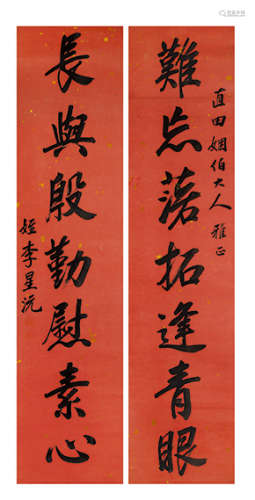 難忘落拓逢青眼
直田姻伯大人 雅正
長與殷勤慰素心
姪李星沅